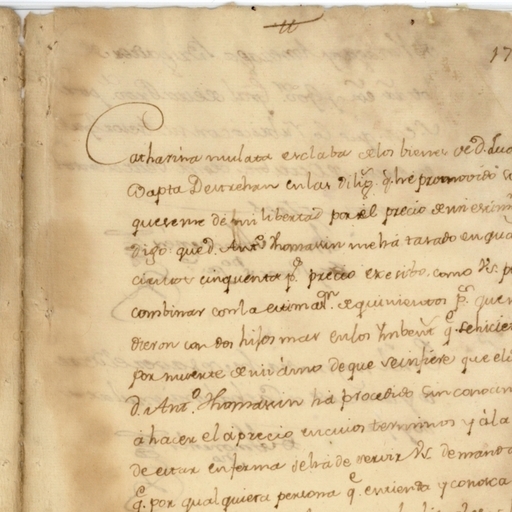 17
Catharina mulata esclaba de los bienes de d. Juo
Bapta Destrehan en las dilig.s q.e he promovido s
que se me dé mi libertad por el precio de mi estim
digo: que d. Ant.o Thomasin me há tasado en qua
cientos cinquenta p.s precio excesibo, como Vs. p
combinar con la estima.on de quinientos p.s que m
dieron con dos hijos mas en los Ymbent.s q.e se hicie
por muerte de mi ámo, de que se infiere que el
d. Ant.o Thomasin há procedido sin conocim
á hacer el áprecio en cuios terminos y á la
de estar en forma se há de servir Vs. de manda
q.e por qualquiera persona q.e entienda y conosca